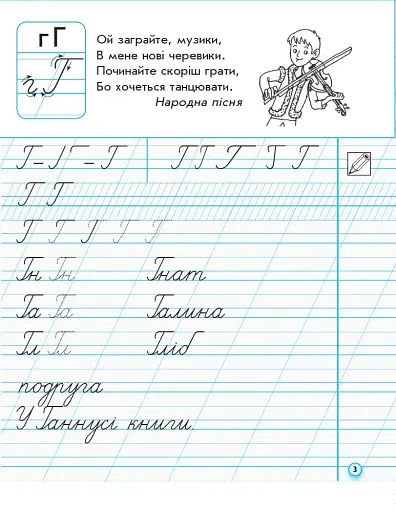 гГ
гГ
Ой заграйте, музики,
В мене нові черевики.
Починайте скоріш грати,
Бо хочеться танцювати.
Народна пісня
Г Г
Г Г Г Г Г
Гн Гн Гнат
Га Га Галина
Гл Гл Гліб
подруга
У Ганнусі книги.
3